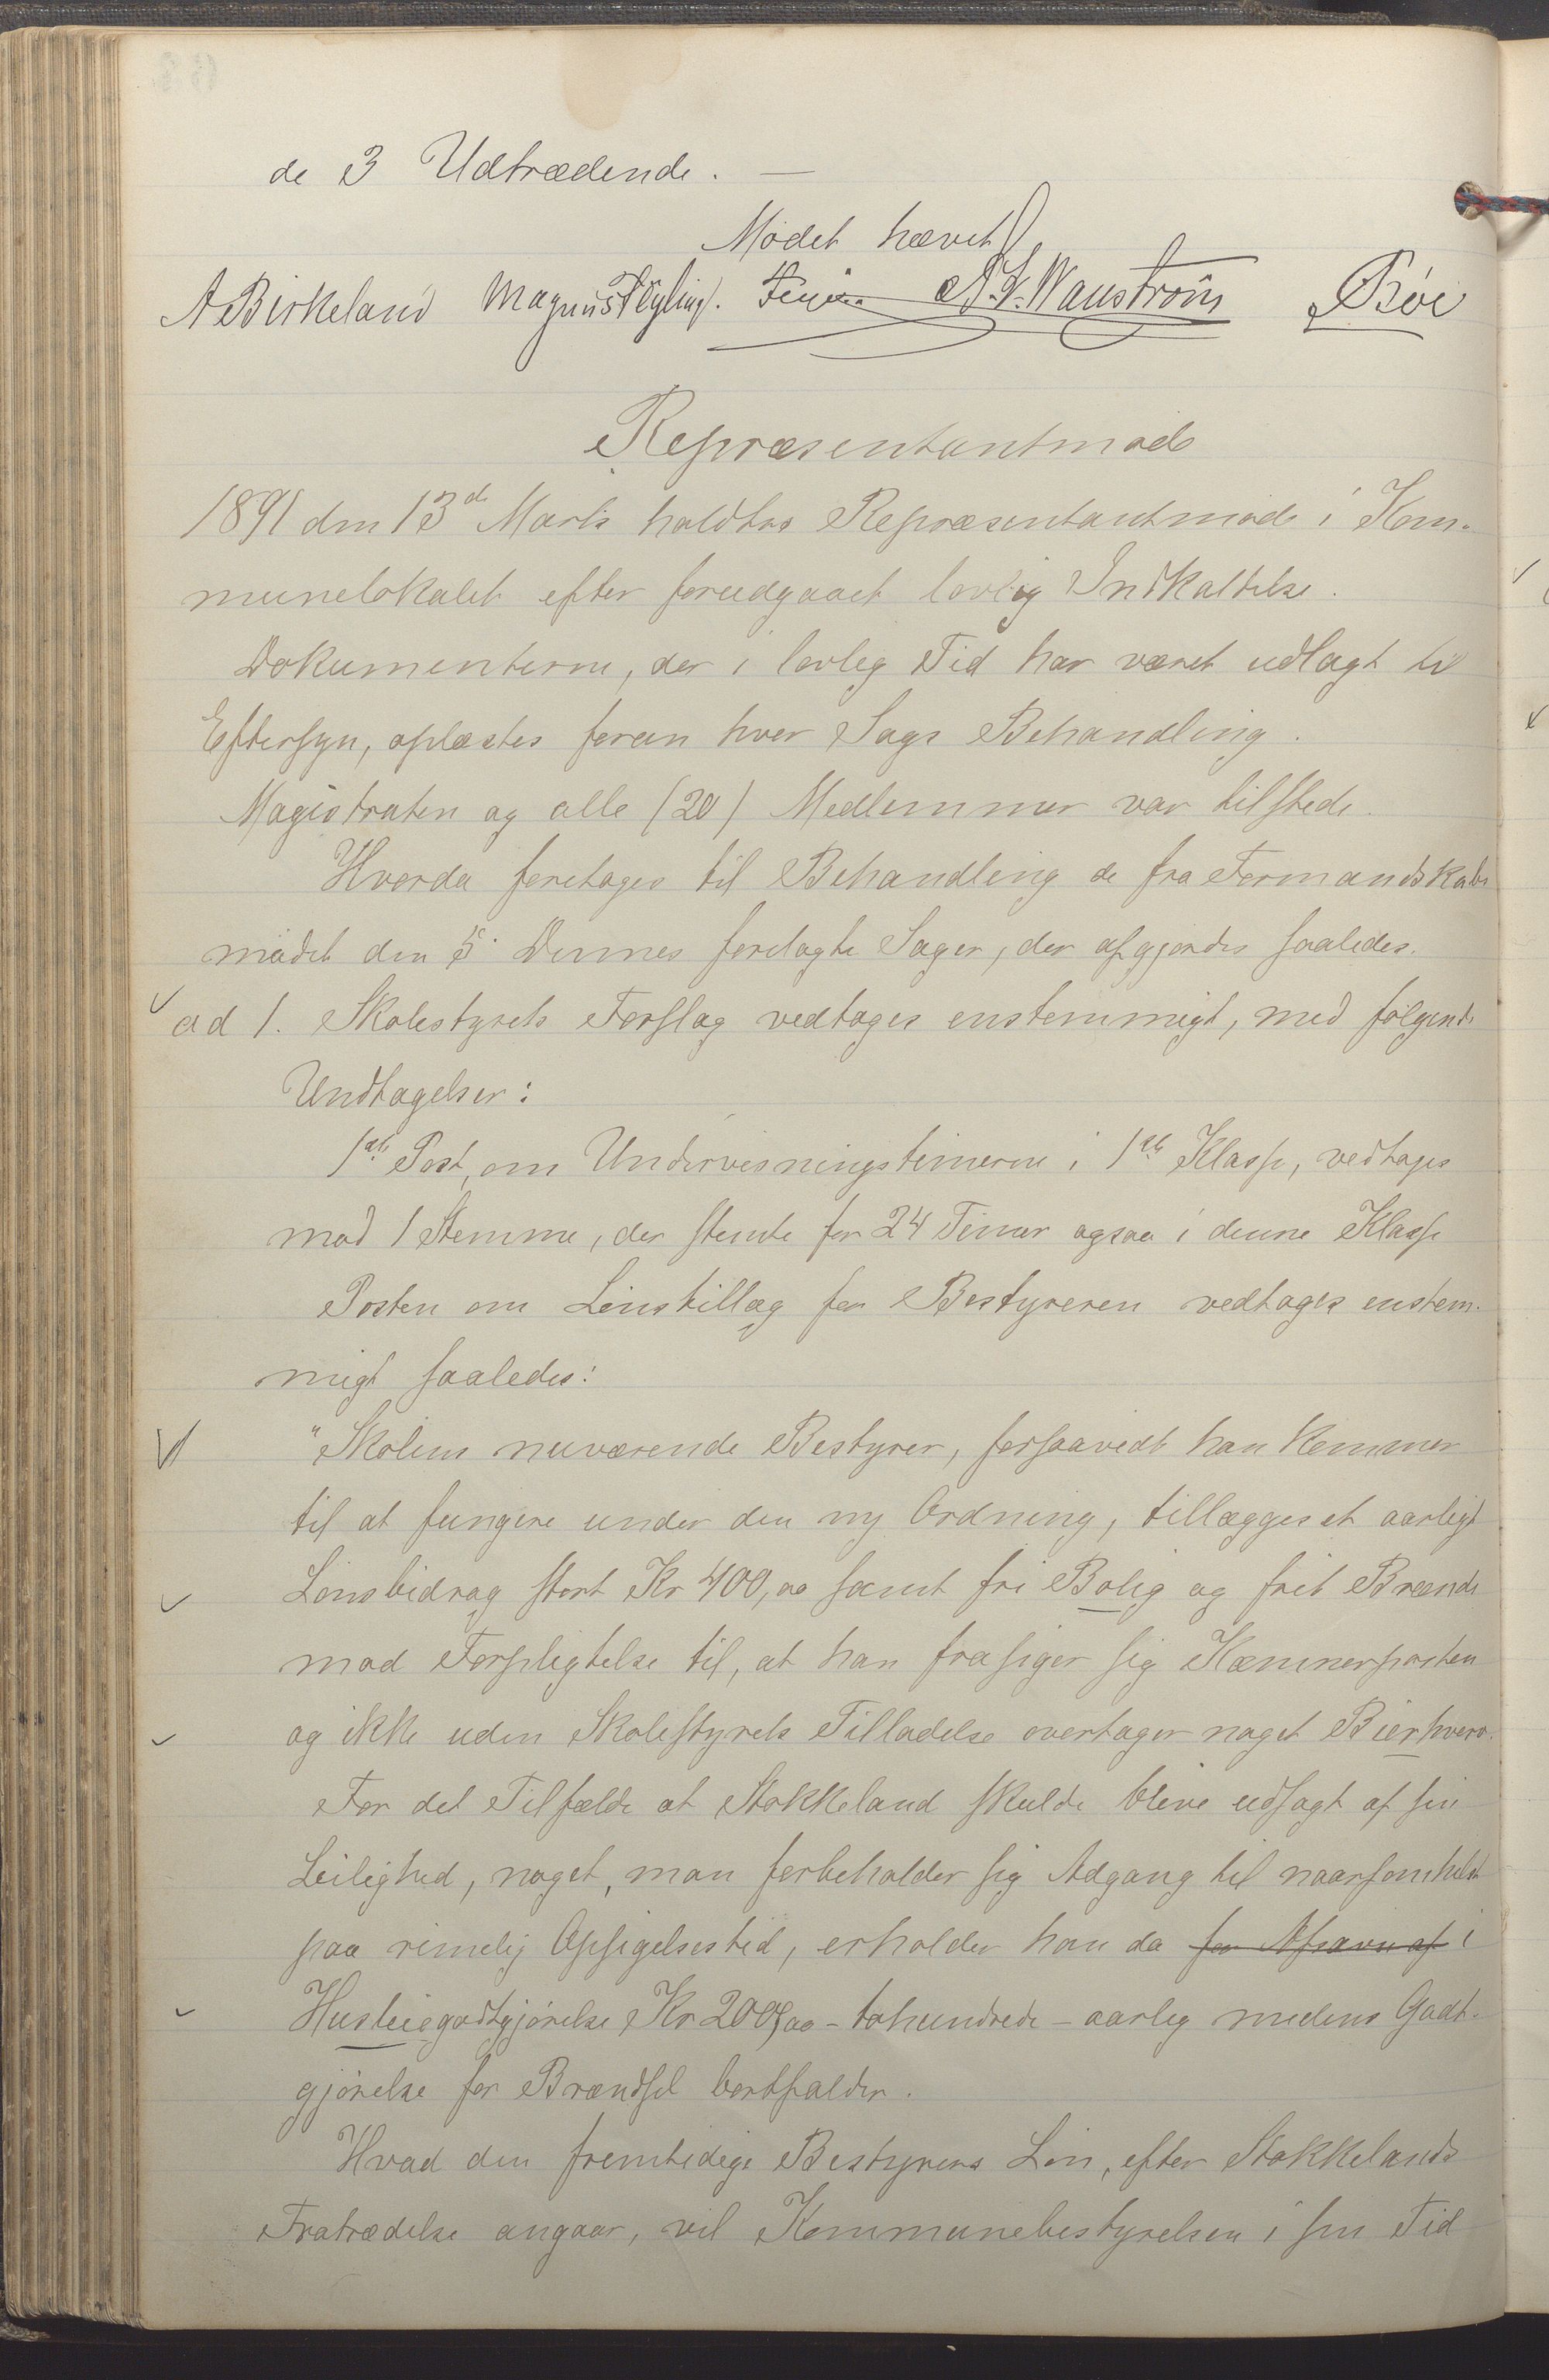 de 3 Udtrædende. —
Mødet hævet
A Birkeland Magnus Flyling. A. V. Wanström Bøe
Repræsentantmøde
1891 den 13de Marts holdtes Repræsentantmøde i Kom-
munelokalet efter forudgaaet lovlig Indkaldelse.
Dokumenterne, der i lovlig Tid har været udlagt til
Eftersyn, oplæstes foran hver Sags Behandling.
Magistraten og alle (20) Medlemmer var tilstede.
Hvorda foretoges til Behandling de fra Formandskabs
mødet den 5te Dennes forelagte Sager, der afgjordes saaledes.
ad 1. Skolestyrets Forslag vedtages enstemmigt, med følgende
Undtagelser:
1ste Post, om Undervisningstimerne i 1ste Klasse, vedtages
mod 1 Stemme, der stemte for 24 Timer ogsaa i denne Klasse
Posten om Lønstillæg for Bestyreren vedtages enstem-
migt saaledes:
"Skolens nuværende Bestyrer, forsaavidt han kommer
til at fungere under den ny Ordning, tillægges et aarligt
Lønsbidrag stort Kr 400,00 samt fri Bolig og frit Brænde
mod Forpligtelse til, at han frasiger sig Kæmnerposten
og ikke uden Skolestyrets Tilladelse overtager noget Bierhverv.
For det Tilfælde at Stokkeland skulde blive udsagt af sin
Leilighed, noget, man forbeholder sig Adgang til naarsomhelst
paa rimelig Opsigelsestid, erholder han da for Afsavn af i
Husleiegodtgjørelse Kr 200,00 - tohundrede - aarlig medens Godt-
gjørelse for Brændsel bortfalder.
Hvad den fremtidige Bestyrers Løn, efter Stokkelands
Fratrædelse angaar, vil Kommunebestyrelsen i sin Tid